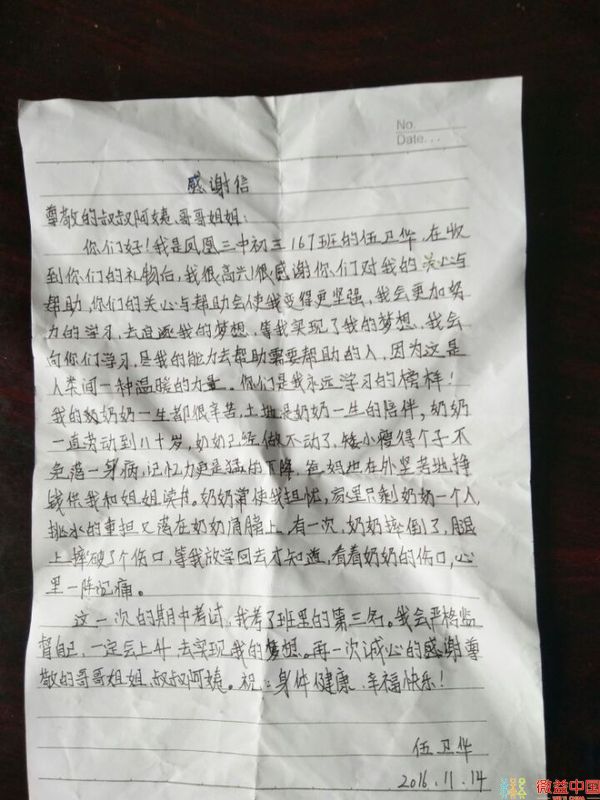 No.
Date...
感谢信
尊敬的叔叔阿姨、哥哥姐姐：
你们好！我是凤凰三中初三167班的伍卫华，在收
到你们的礼物后，我很高兴！很感谢你们对我的关心与
帮助，你们的关心与帮助会使我变得更坚强，我会更加努
力的学习，去追逐我的梦想，等我实现了我的梦想，我会
向你们学习，尽我的能力去帮助需要帮助的人，因为这是
人类间一种温暖的力量。你们是我永远学习的榜样！
我的奶奶一生都很辛苦，土地是奶奶一生的陪伴，奶奶
一直劳动到八十岁，奶奶已经做不动了，矮小瘦得个子不
免落一身病，记忆力更是猛的下降，爸妈也在外坚苦地挣
钱供我和姐姐读书。奶奶常使我担忧，家里只剩奶奶一个人，
挑水的重担又落在奶奶肩膀上，有一次，奶奶摔倒了，腿
上摔破了个伤口，等我放学回去才知道，看着奶奶的伤口，心
里一阵沉痛。
这一次的期中考试，我考了班里的第三名。我会严格监
督自己，一定会上升，去实现我的梦想。再一次诚心的感谢尊
敬的哥哥姐姐、叔叔阿姨。祝：身体健康、幸福快乐！
伍卫华
2016.11.14
微益中国